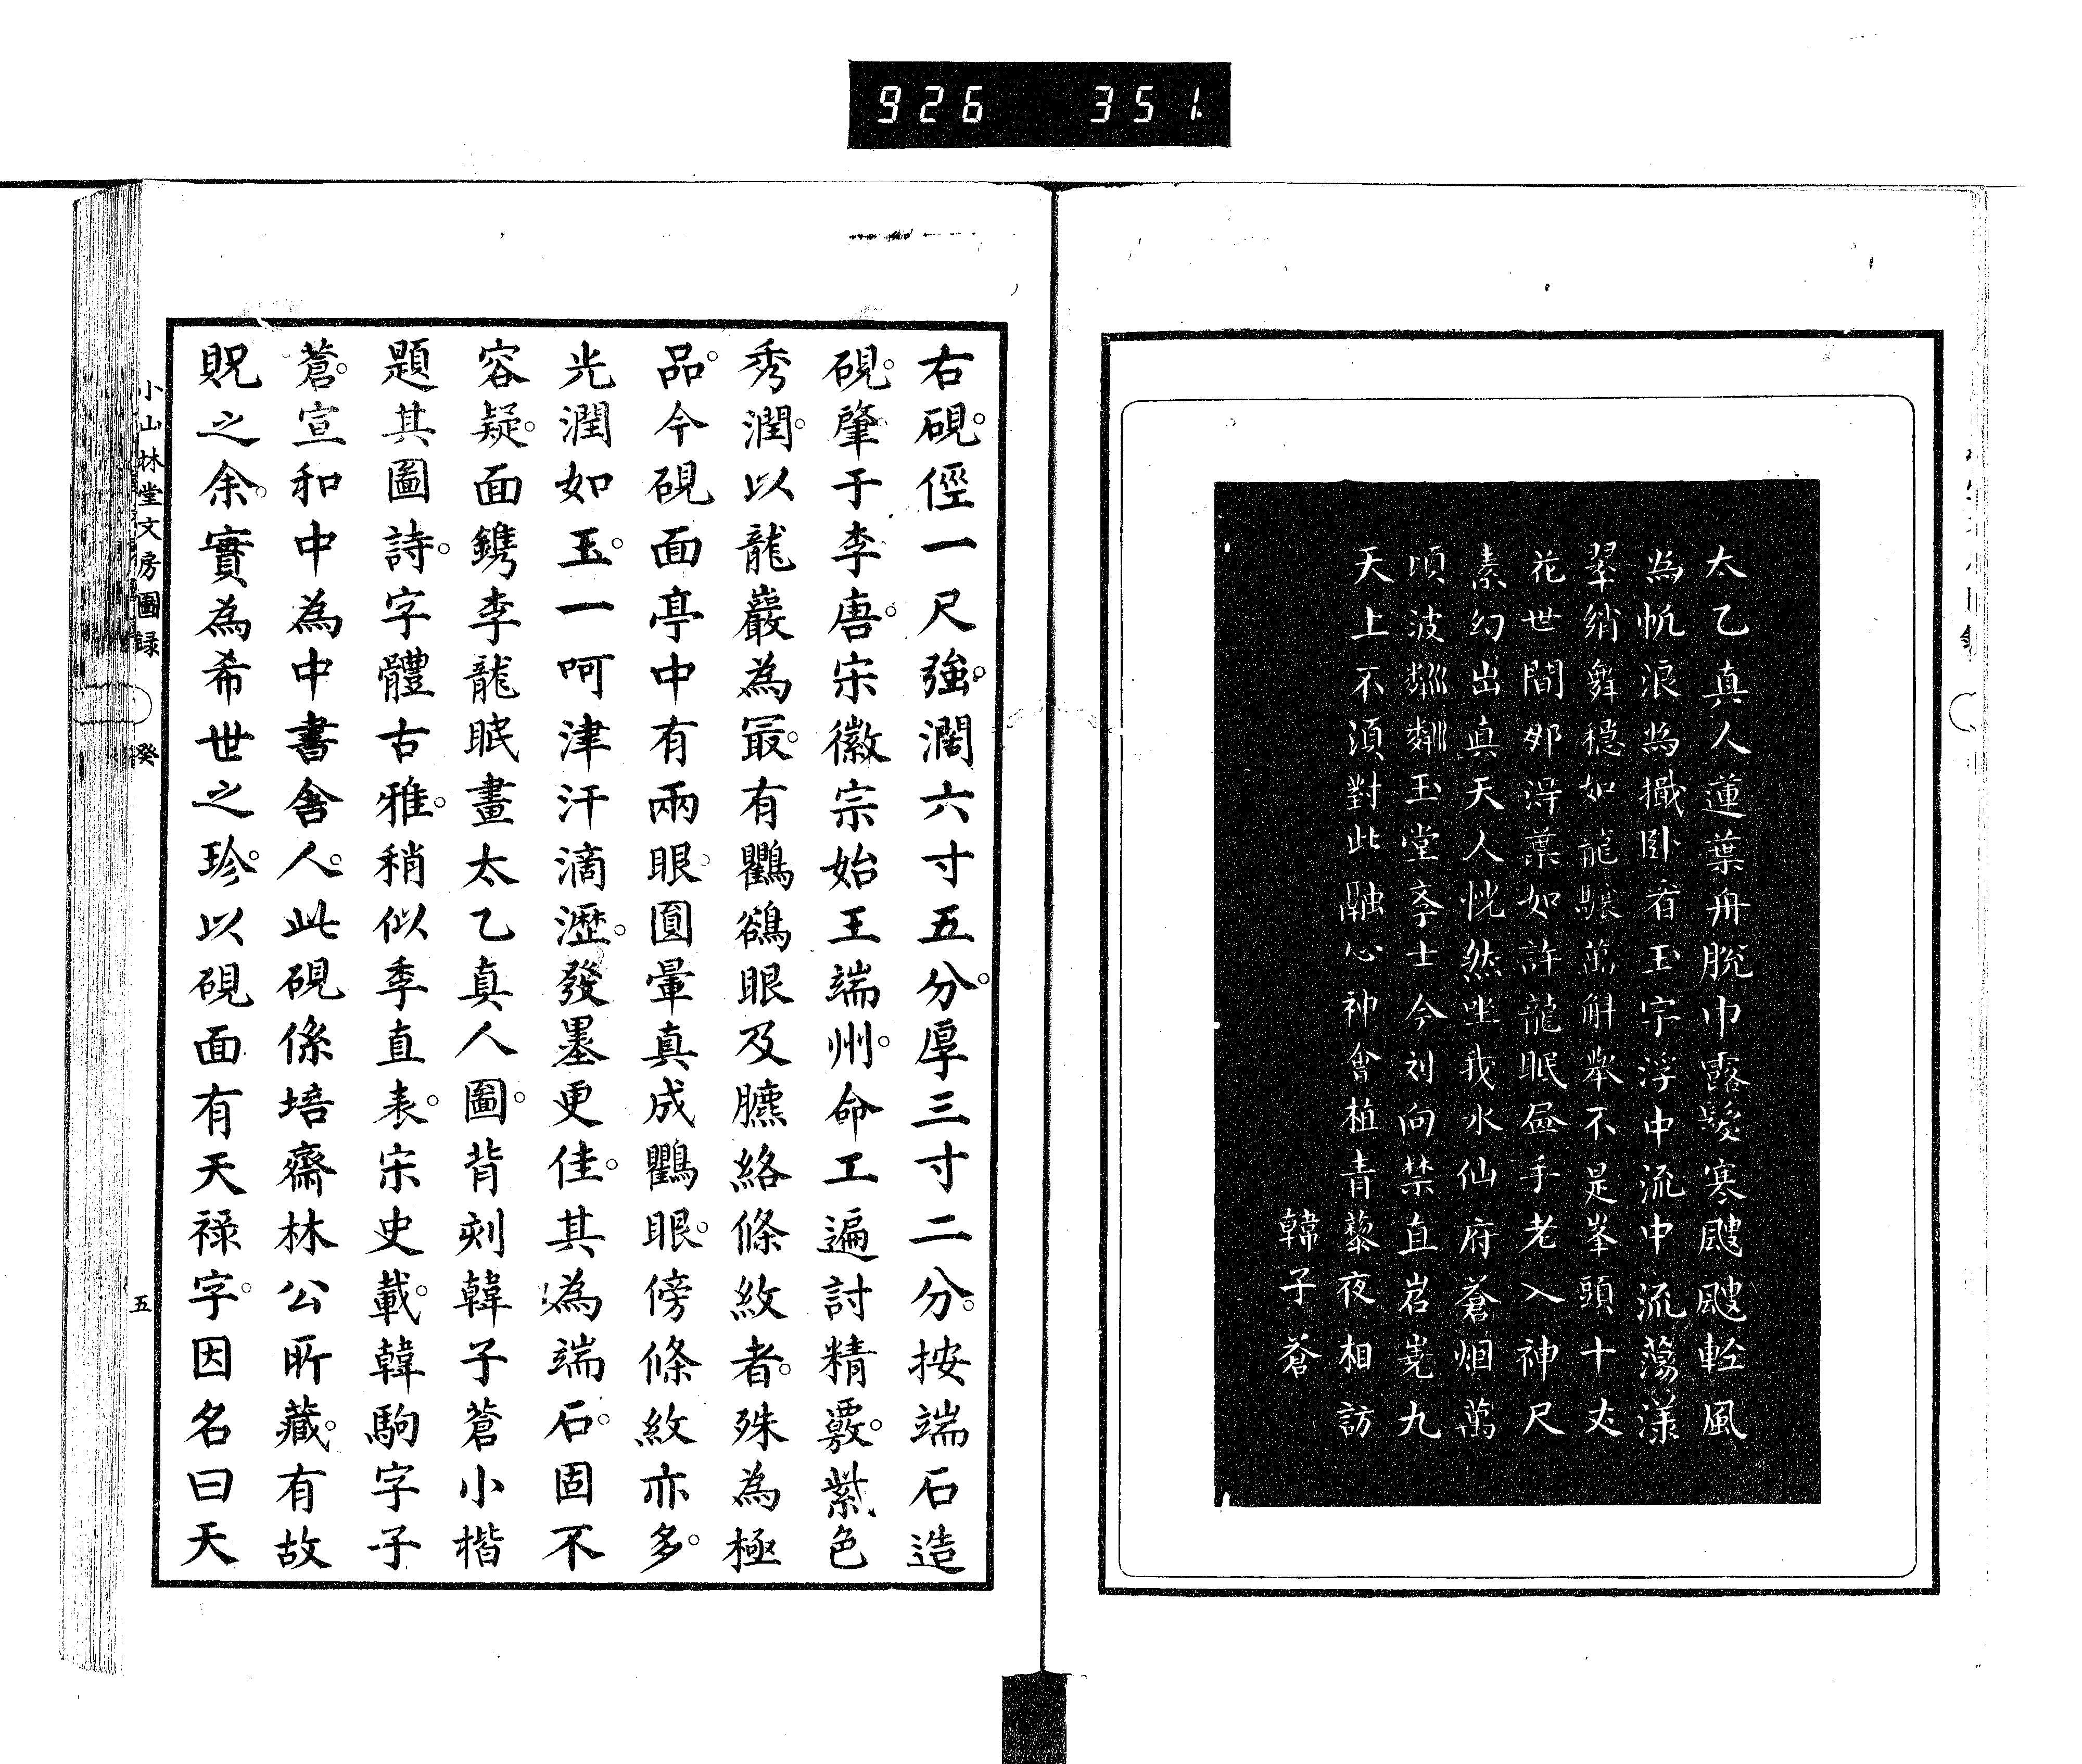 926 351
太乙真人蓮葉舟脫巾露髮寒颼颼輕風
為帆浪為檝卧看玉宇浮中流中流蕩漾
翠綃舞穩如龍驤萬斛舉不是峯頭十丈
花世間那得葉如許龍眠畫手老入神尺
素幻出真天人恍然坐我水仙府蒼烟萬
頃波粼粼玉堂學士今刘向禁直岧嶤九
天上不須對此融心神會植青藜夜相訪
韓子蒼
右硯。徑一尺強。濶六寸五分。厚三寸二分。按端石造
硯。肇于李唐。宋徽宗始王端州。命工遍討精覈。紫色
秀潤。以龍巖為最。有鸜鵒眼及臙絡條紋者。殊為極
品。今硯面亭中有兩眼。圓暈真成鸜眼。傍條紋亦多。
光潤如玉。一呵津汗滴瀝。發墨更佳。其為端石。固不
容疑。面鐫李龍眠畫太乙真人圖。背刻韓子蒼小楷
題其圖詩。字體古雅。稍似季直表。宋史載。韓駒字子
蒼。宣和中為中書舍人。此硯係培齋林公所藏。有故
貺之余。實為希世之珍。以硯面有天祿字。因名曰天
小山林堂文房圖録 癸 五